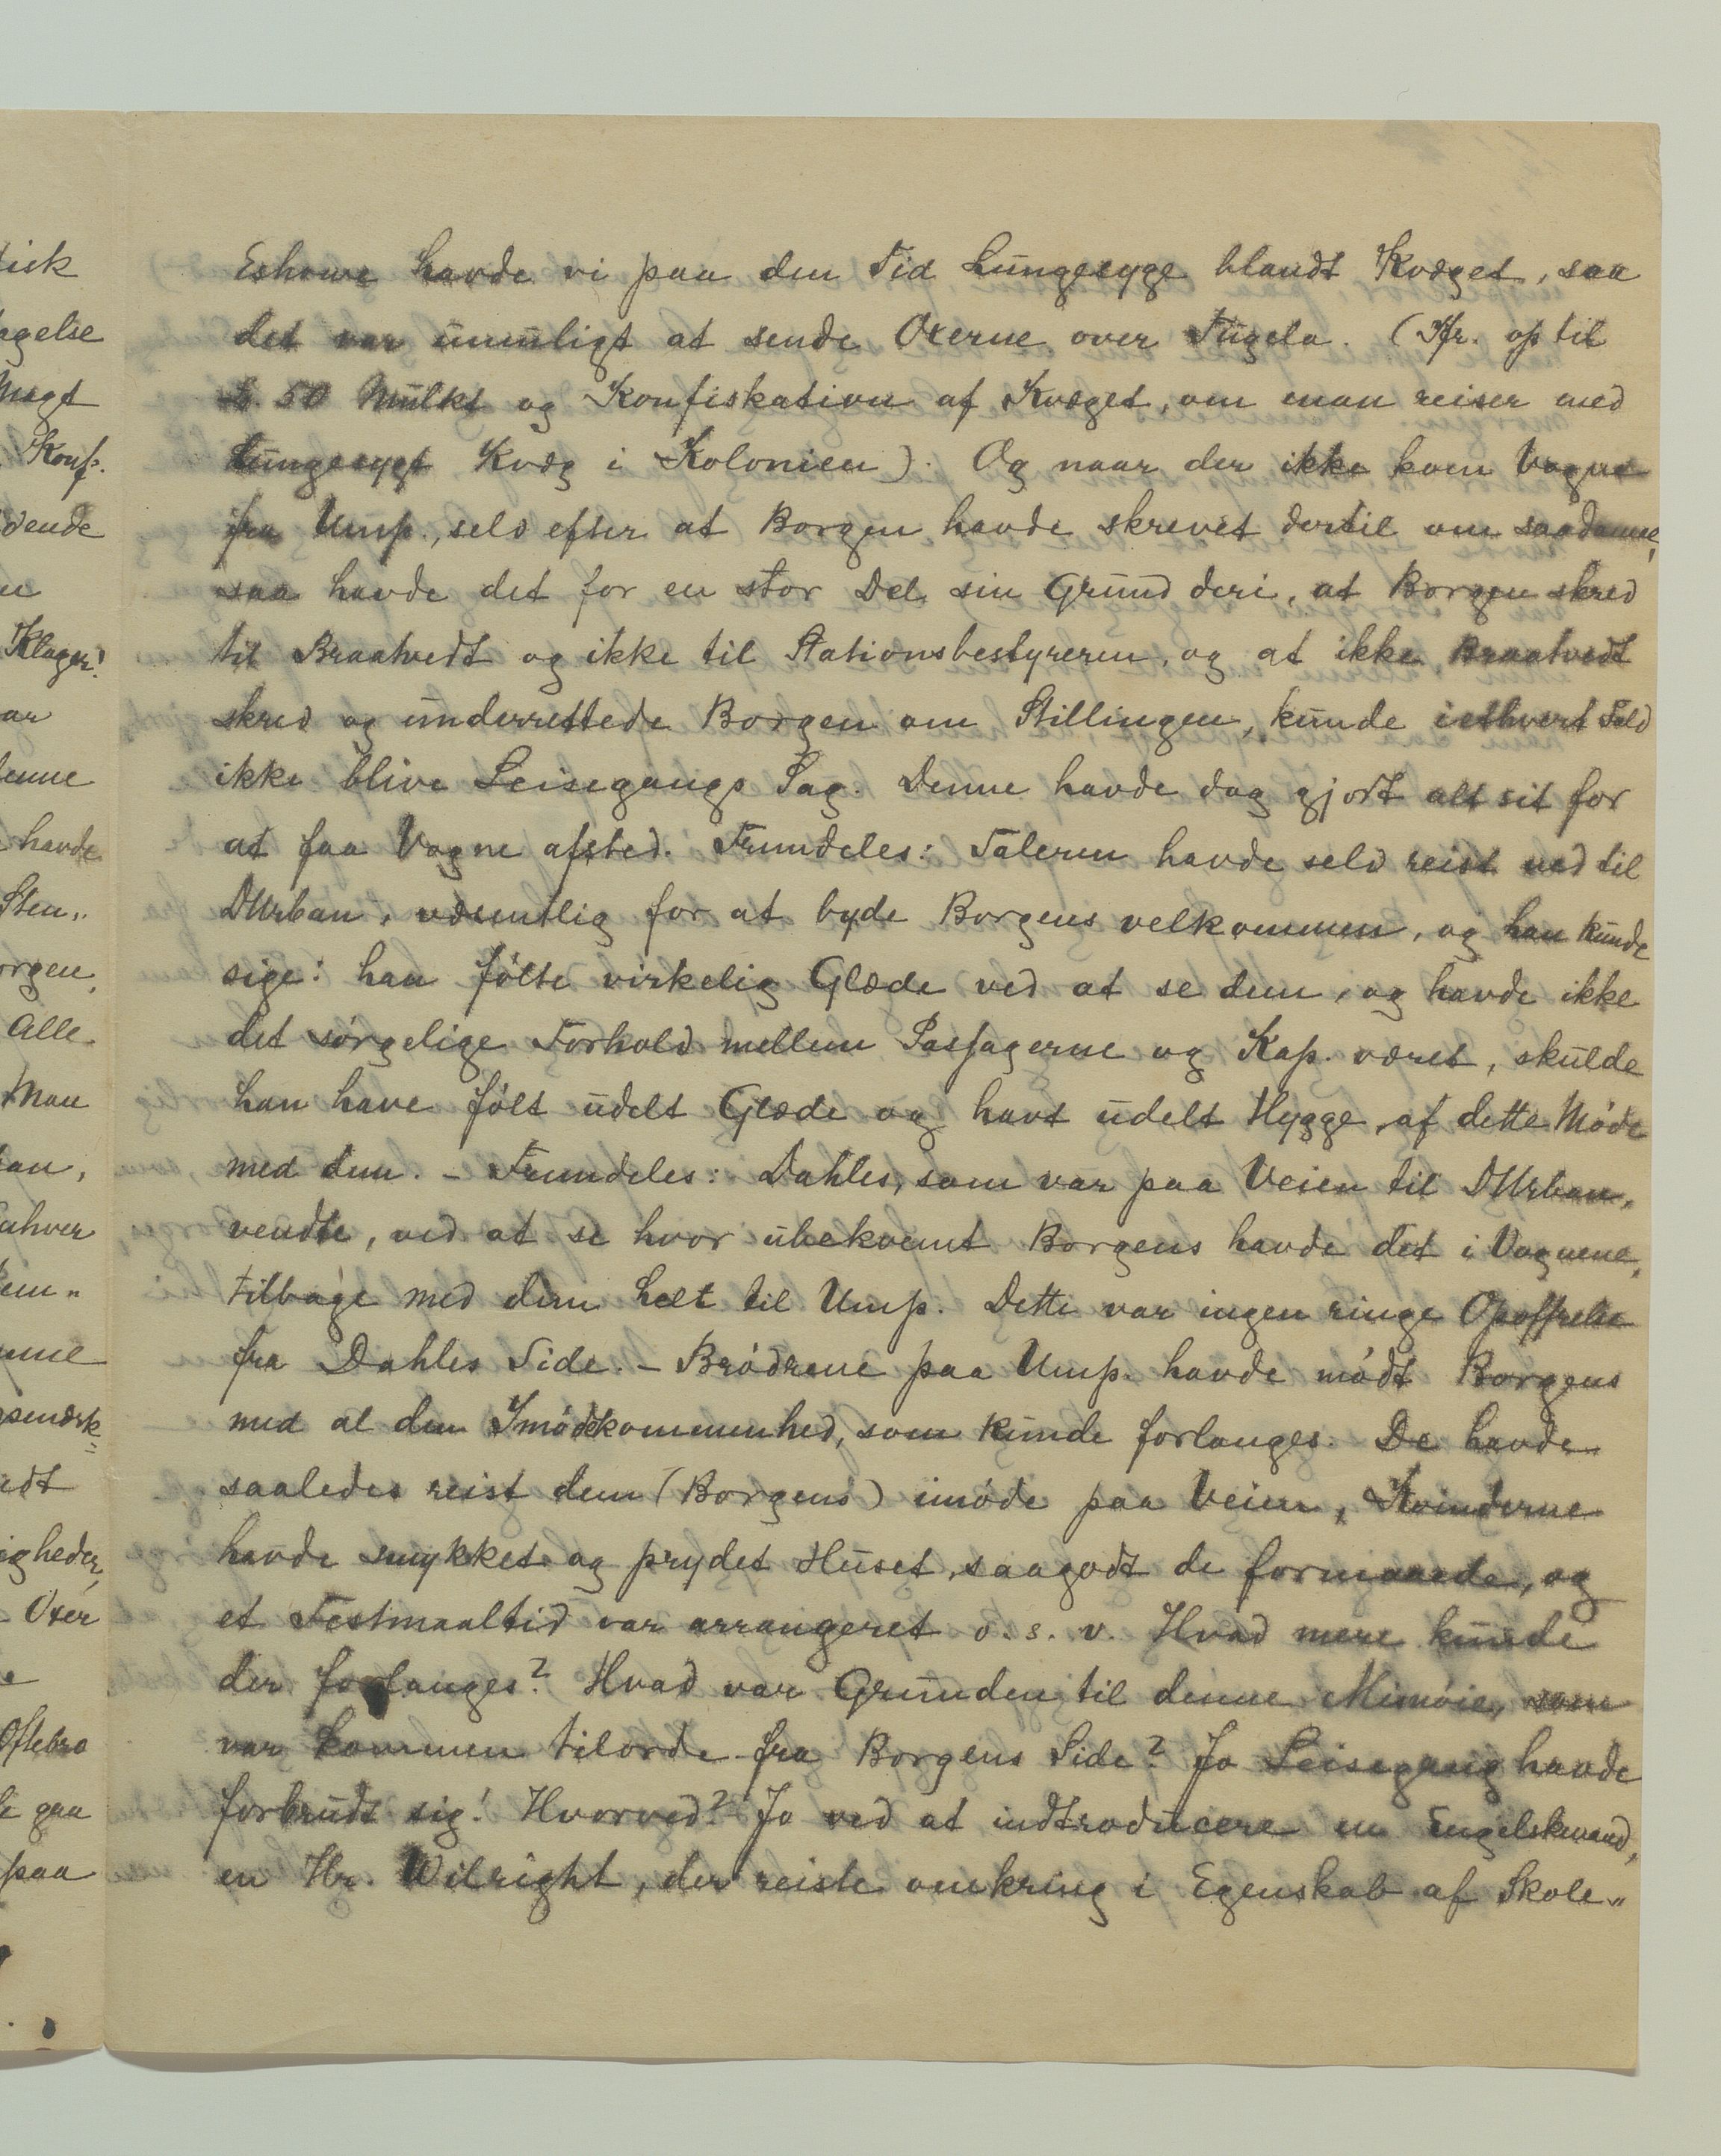 Eshowe havde vi paa den Tid Lungesyge blandt Kvæget, saa
det var umuligt at sende Oxerne over Tugela. (Kfr. op til
£. 50 Mulkt og Konfiskation af Kvæget, om man reiser med
lungesygt Kvæg i Kolonien). Og naar der ikke kom Vogne
fra Ump., selv efter at Borgen havde skrevet dertil om saadanne,
saa havde det for en stor Del sin Grund deri, at Borgen skrev
til Braatvedt og ikke til Stationsbestyreren, og at ikke Braatvedt
skrev og underrettede Borgen om Stillingen, kunde i ethvert Fald
ikke blive Leisegangs Sag. Denne havde dog gjort alt sit for
at faa Vogne afsted. Fremdeles: Taleren havde selv reist ned til
DUrban, væsentlig for at byde Borgens velkommen, og han kunde
sige: han følte virkelig Glæde ved at se dem, og havde ikke
det sørgelige Forhold mellem Passagerne og Kap. været, skulde
han have følt udelt Glæde og havt udelt Hygge af dette Møde
med dem. – Fremdeles: Dahles, som var paa Veien til DUrban,
vendte, ved at se hvor ubekvemt Borgens havde det i Vognene,
tilbage med dem helt til Ump. Dette var ingen ringe Opoffrelse
fra Dahles Side. – Brødrene paa Ump. havde mødt Borgens
med al den Imødekommenhed, som kunde forlanges. De havde
saaledes reist dem (Borgens) imøde paa Veien, Kvinderne
havde smykket og prydet Huset, saagodt de formaaede, og
et Festmaaltid var arrangeret o. s. v. Hvad mere kunde
der forlanges? Hvad var Grunden til denne Mismøie, som
var kommen tilorde fra Borgens Side? Jo Leisegang havde
forbrudt sig! Hvorved? Jo ved at indtroducere en Engelskmand,
en Hr. Wilright, der reiste omkring i Egenskab af Skole„